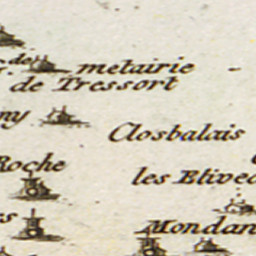 de
metairie
de Tressort
ny
Closbalais
Roche
les Etived
es
Mondan